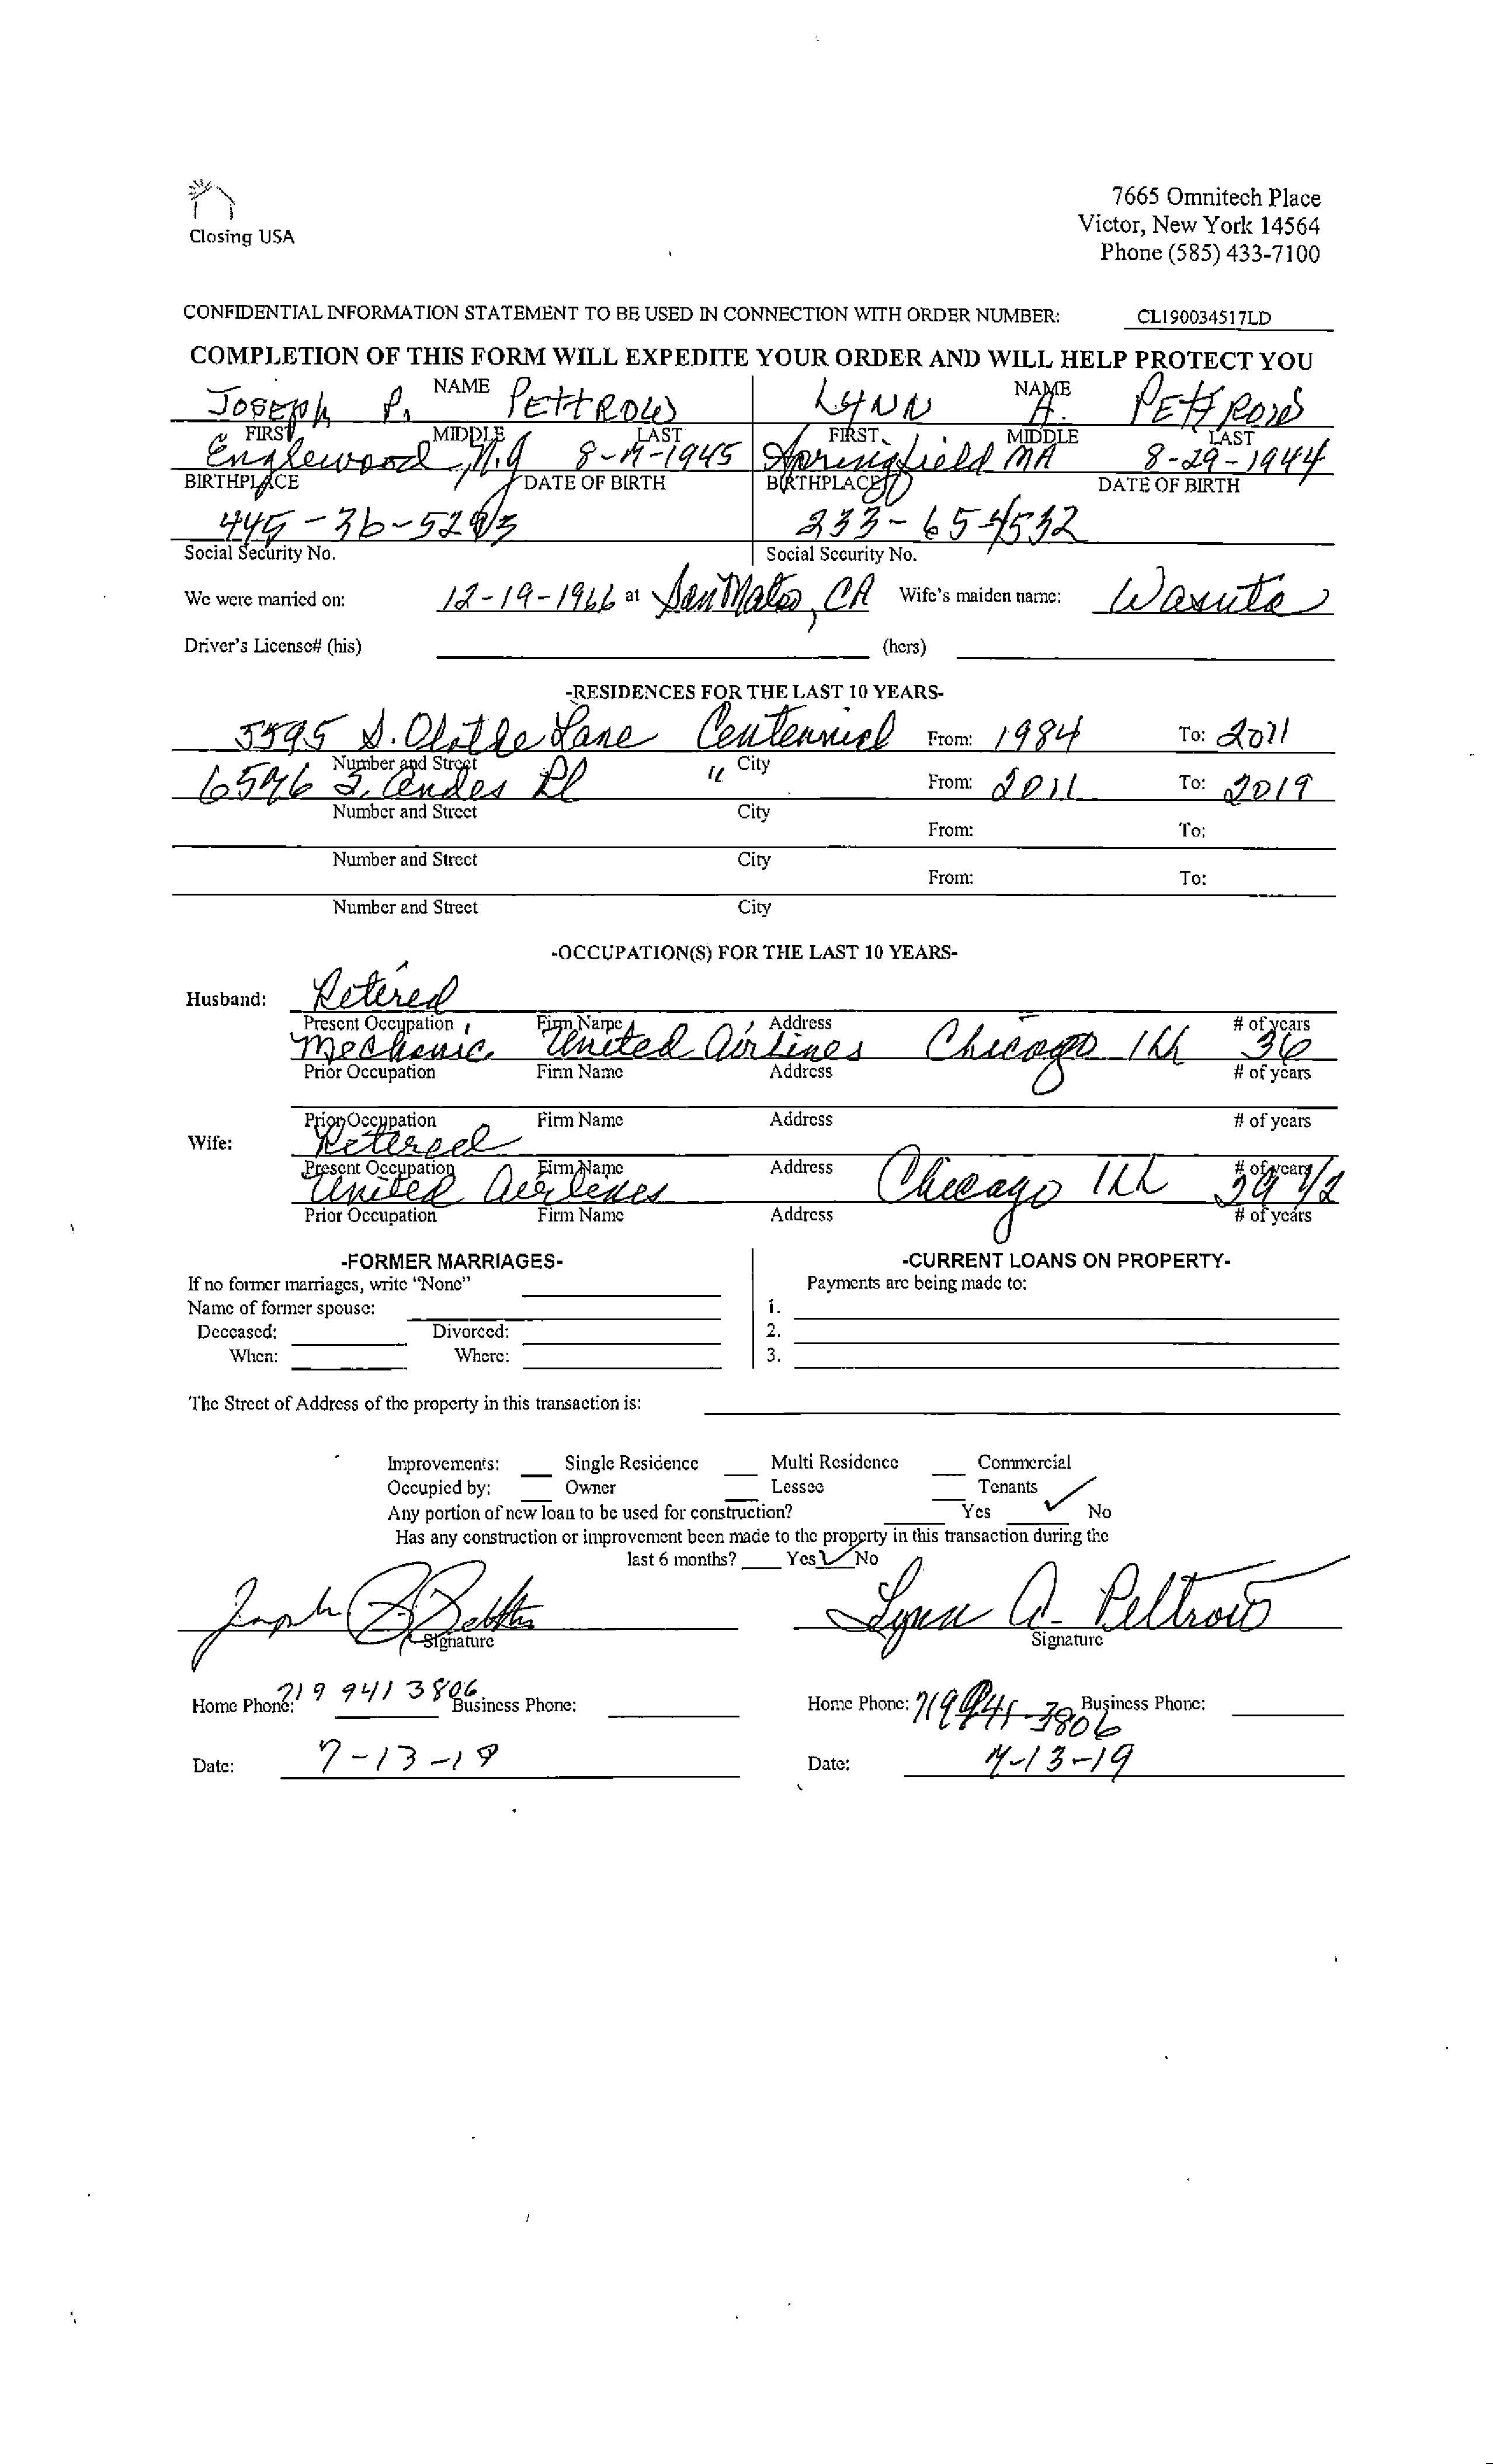 Closing USA
7665 Omnitech Place
Victor, New York 14564
Phone (585) 433-7100
CONFIDENTIAL INFORMATION STATEMENT TO BE USED IN CONNECTION WITH ORDER NUMBER: CL190034517LD
COMPLETION OF THIS FORM WILL EXPEDITE YOUR ORDER AND WILL HELP PROTECT YOU
NAME NAME
Joseph P. Pettrow LYNN A. Pettrow
FIRST MIDDLE LAST FIRST MIDDLE LAST
Englewood, N.J 8-19-1945 Springfield MA 8-29-1944
BIRTHPLACE DATE OF BIRTH BIRTHPLACE DATE OF BIRTH
233-65-4532
Social Security No. Social Security No.
We were married on: 12-19-1966 at San Mateo, CA Wife's maiden name: Wasuta
Driver's License# (his) (hers)
-RESIDENCES FOR THE LAST 10 YEARS-
5595 S. Olathe Lane Centennial From: 1984 To: 2011
Number and Street City
S. Andes Pl " From: 2011 To: 2019
Number and Street City
From: To:
Number and Street City
From: To:
Number and Street City
-OCCUPATION(S) FOR THE LAST 10 YEARS-
Husband: Retired
Present Occupation Firm Name Address # of years
Mechanic United Airlines Chicago Ill 36
Prior Occupation Firm Name Address # of years
Prior Occupation Firm Name Address # of years
Wife: Retired
Present Occupation Firm Name Address # of years
United Airlines Chicago Ill 39 1/2
Prior Occupation Firm Name Address # of years
-FORMER MARRIAGES- -CURRENT LOANS ON PROPERTY-
If no former marriages, write "None" Payments are being made to:
Name of former spouse: 1.
Deceased: Divorced: 2.
When: Where: 3.
The Street of Address of the property in this transaction is:
Improvements: Single Residence Multi Residence Commercial
Occupied by: Owner Lessee Tenants
Any portion of new loan to be used for construction? Yes ✓ No
Has any construction or improvement been made to the property in this transaction during the
last 6 months? Yes ✓ No
Joseph P Pettrow Lynn A. Pettrow
Signature Signature
Home Phone: 719 941 3806 Business Phone: Home Phone: 719 941-3806 Business Phone:
Date: 7-13-19 Date: 7-13-19